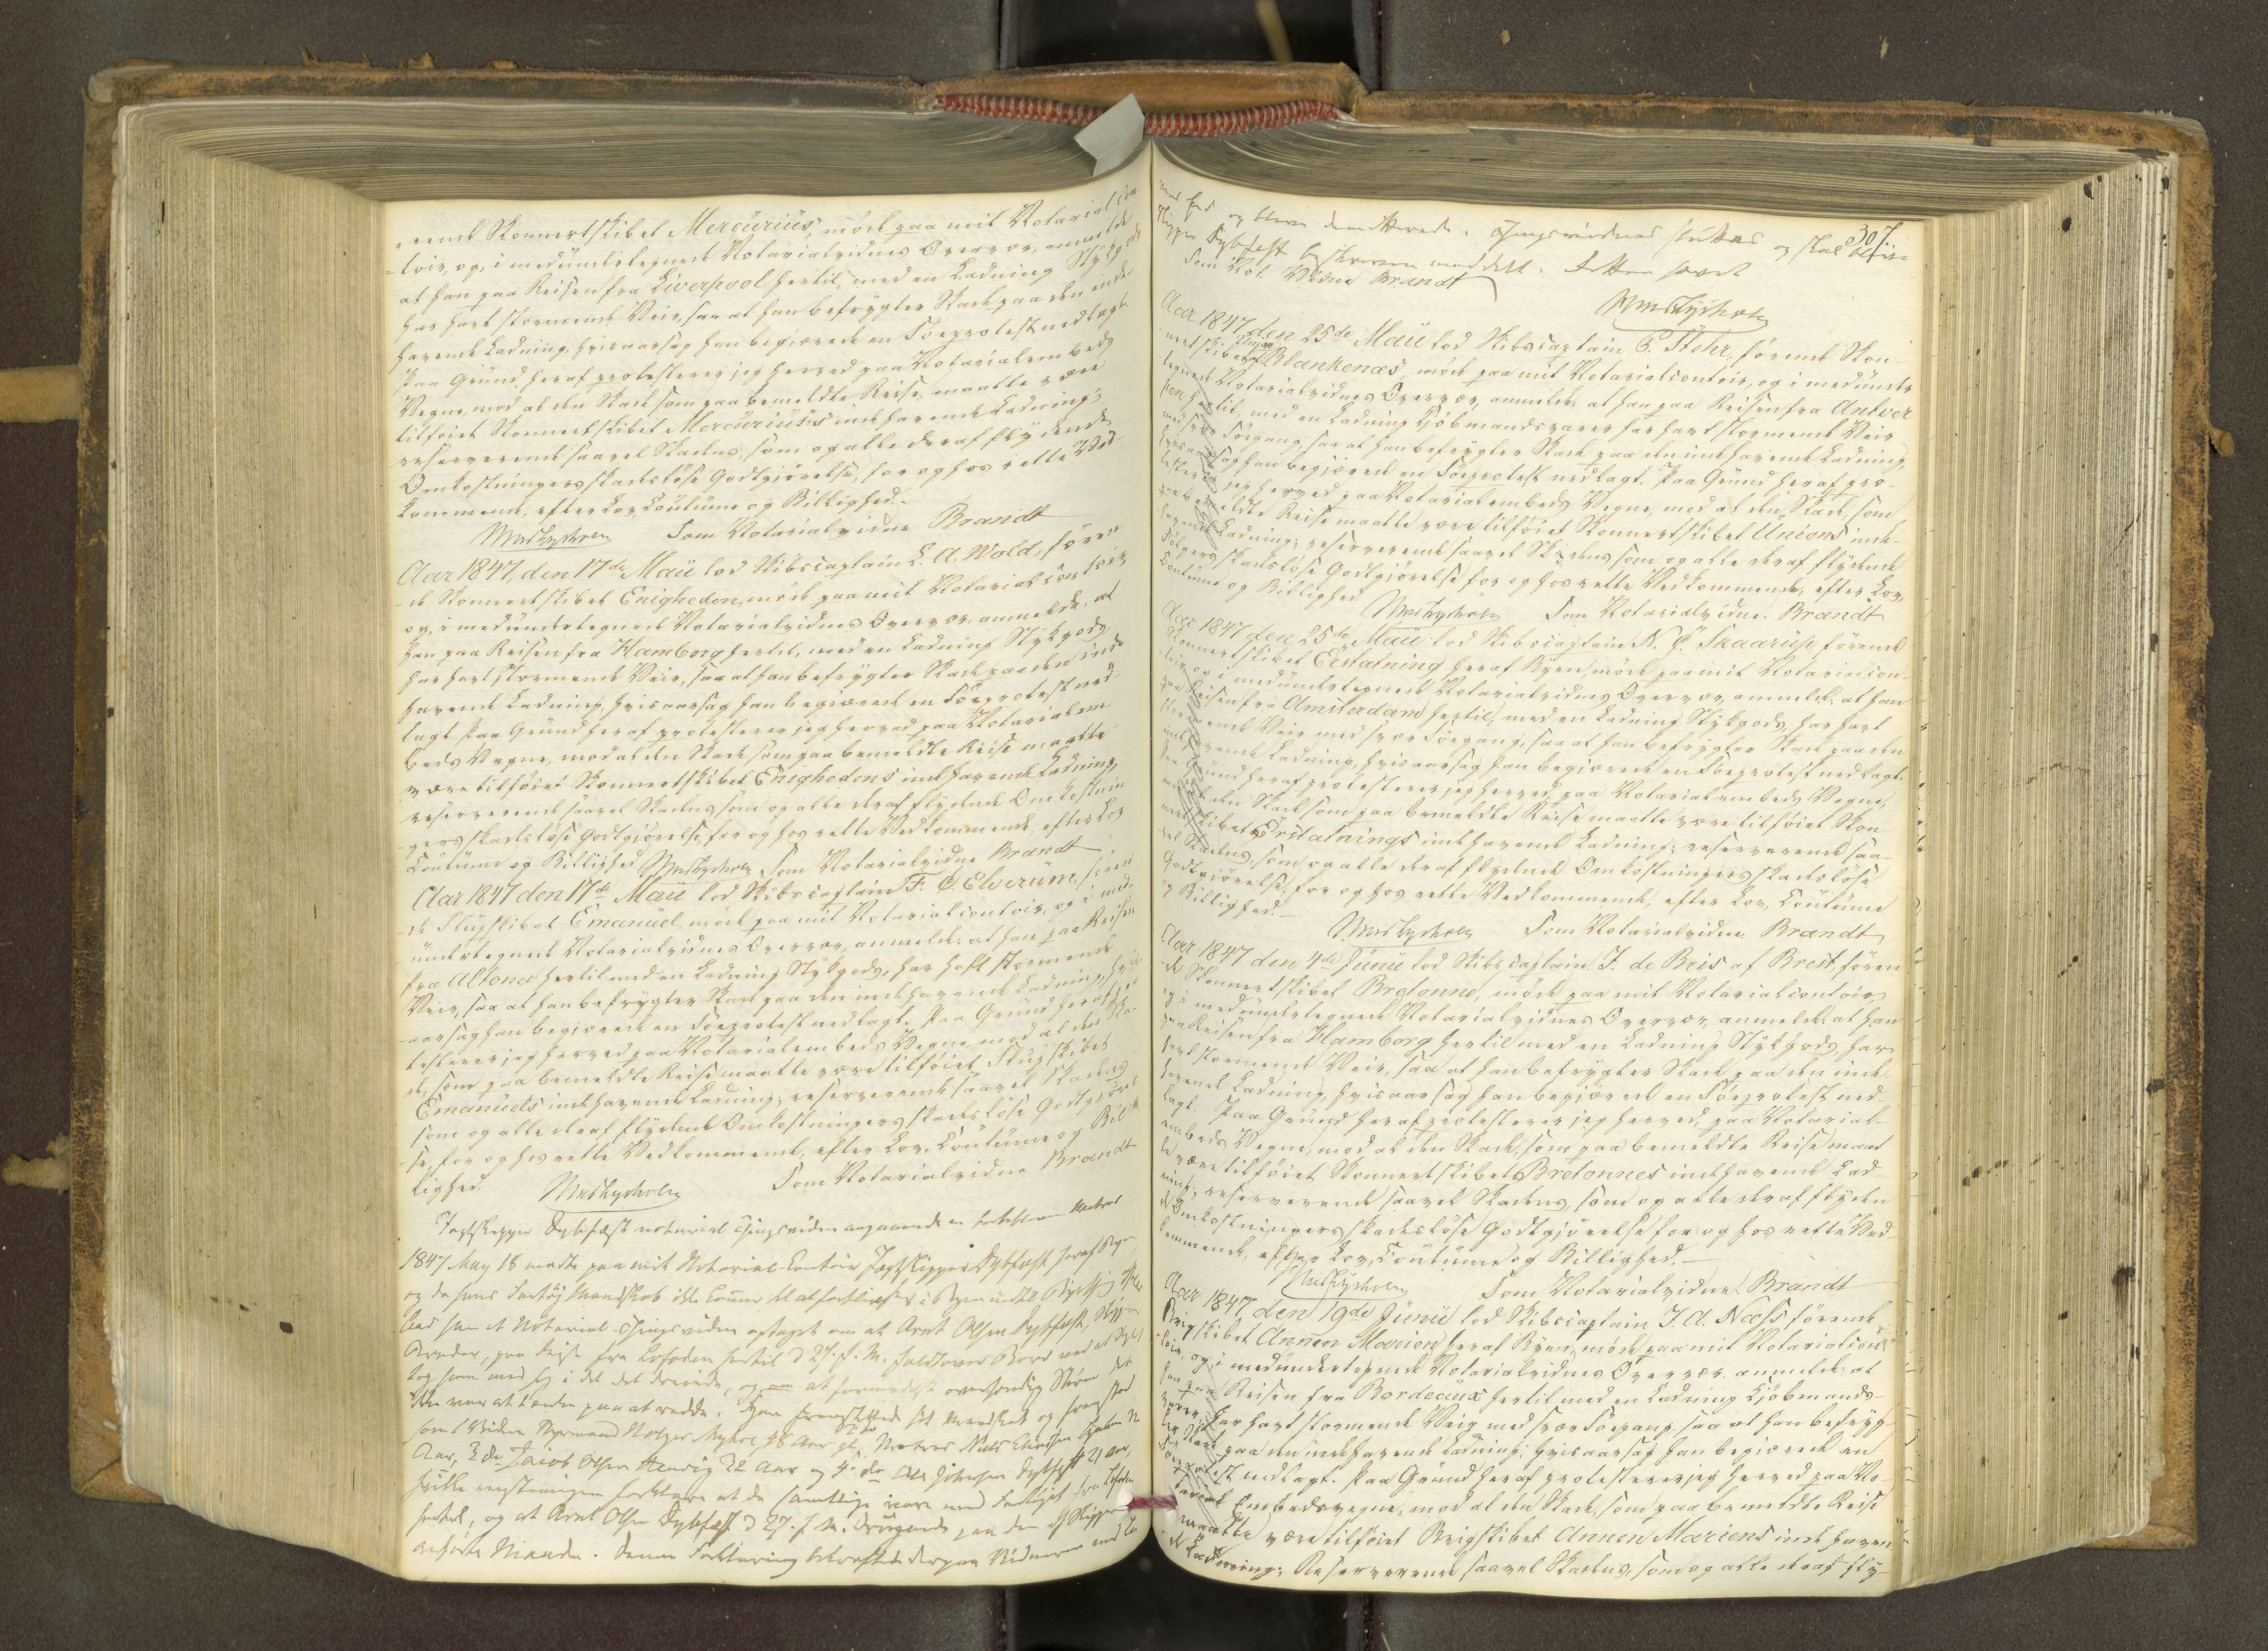 erende Skonnertskibet Mercüriüs, möde paa mit Notarialcon
toir, og, i medündertegnede Notarialvidnes Overvær, anmelde
at han paa Reisen fra Liverpool hertil, med en Ladning Stykgods
har havt stormende Veir, saa at han befrygter Skade paa den inde
havende Ladning, hvisaarsag han begjærede en Söeprotest nedlagt.
Paa Gründ heraf protesterer jeg herved paa Notarialembeds
Vegne, mod al den Skade som paa bemeldte Reise, maatte være
tilföiet Skonnertskibet Mercüriüs's indehavende Ladning;
reserverende saavel Skadens, som og alle deraf flydende
Omkostningers skadeslöse Godtgjörelse, for og hos rette Ved-
kommende, efter Lov, Coütüme og Billighed.-
Som Notarialvidne Brandt
Aar 1847, den 17de Maii lod Skibscaptain L. A. Wold, fören
de Skonnertskibet Enigheden, möde paa mit Notarialcontoir,
og, i medündertegnede Notarialvidnes Overvær, anmelde: at
han paa Reisen fra Hamborg hertil, med en Ladning Stykgods,
har havt stormende Veir, saa at han befrygter Skade paa den inde
havende Ladning, hvisaarsag han begjærede en Söeprotest ned-
lagt. Paa Gründ heraf protesterer jeg herved paa Notarialem
beds Vegne, mod al den Skade som paa bemeldte Reise maatte
være tilföiet Skonnertskibet Enighedens indehavende Ladning,
reserverende saavel Skadens, som og alle deraf flydende Omkostnin
gers skadeslöse Godtgjörelse, for og hos rette Vedkommende, efter Lov
Coütüme og Billighed. Som Notarialvidne Brandt
Aar 1847 den 17de Maii lod Skibscaptain F. C. Elverüm, fören
de Slüpskibet Emanüel, möde paa mit Notarialcontoir, og i med-
ündertegnede Notarialvidnes Overvær, anmelde: at han paa Reisen
fra Altona hertil med en Ladning Stykgods, har havt stormende
Veir, saa at han befrygter Skade paa den indehavende Ladning, hvis-
aarsag han begjærede en Söeprotest nedlagt. Paa Gründ heraf pro
testerer jeg herved paa Notarialembeds Vegne, mod al den Ska-
de, som paa bemeldte Reise maatte være tilföiet Slüpskibet
Emanüels indehavende Ladning; reserverende saavel Skadens
som og alle deraf flydende Omkostningers skadeslöse Godtgjörel
se, for og hos rette Vedkommende, efter Lov, Coütüme og Bil
lighed. Som Notarialvidne Brandt
Jagtskipper Dybfest notarial Tingsvidne angaaende en
1847 May 18 mødte paa mit Notarial-Contoir Jagtskipper Dybfest heraf Byen
og da hans Fartøj Mandskab ikke
han et Notarial-Tingsvidne optaget om at Arnt Olsen Dybfest, Skipperens
Broder, paa Reise fra Lofoden hertil d 27. f. M. faldt over Bord ved at
tog ham med sig i det det , og at formedelst overhændig Storm det
ikke var at tænke paa at redde. Han fremstillede sit Mandskab og
som 1 Vidne Styrmand Holger 48 Aar gl, Matros Niels
Aar, 3de Jacob Olsen 22 Aar og 4de Ole Johnsen Dybfest 21 Aar,
hvilke eenstemmigen forklarede at de samtlige vare med Fartøjet fra Lofoden
hertil, og at Arnt Olsen Dybfest d 27. f. M. paa den af Skipperen
anførte Maade. Denne Forklaring bekræftede derpaa Vidnerne med
307.
Eed og bleve demitterede. Tingsvidnet sluttes og skal blive
Skipper Dybfest beskreven meddelt.
Som Not. Vidne Brandt
Aar 1847, den 25de Maii lod Skibscaptain C. Stehr, förende Skon-
nertskibet Blankenæs, möde paa mit Notarialcontoir, og i medünder
tegnede Notarialvidnes Overvær, anmelde: at han paa Reisen fra Antver
pen hertil, med en Ladning Kjöbmandsvarer har havt stormende Veir
med svær Söegang, saa at han befrygter Skade paa den indehavende Ladning,
hvisaarsag han begjærede en Söeprotest nedlagt. Paa Gründ heraf pro-
testerer jeg herved paa Notarialembeds Vegne, mod al den Skade, som
paa bemeldte Reise maatte være tilföiet Skonnertskibet Unions inde-
havende Ladning; reserverende saavel Skadens som og alle deraf flydende
Fölgers skadeslöse Godtgjörelse for og hos rette Vedkommende, efter Lov,
Coütüme og Billighed. Som Notarialvidne. Brandt
Aar 1847 den 25de Maii lod Skibscaptain N. C. Skaarüp, förende
Skonnertskibet Erstatning heraf Byen, möde paa mit Notarialcon-
toir, og i medündertegnede Notarialvidnes Overvær, anmelde: at han
paa Reisen fra Amsterdam hertil, med en Ladning Stykgods, har havt
stormende Veir med svær Söegang, saa at han befrygter Skade paa den
indehavende Ladning, hvisaarsag han begjærede en Söeprotest nedlagt.
Paa Gründ heraf protesterer jeg herved, paa Notarialembeds Vegne,
mod al den Skade som paa bemeldte Reise maatte være tilföiet Skon-
nertskibet Erstatnings indehavende Ladning; reserverende saa-
vel Skadens, som og alle deraf flydende Omkostningers skadeslöse
Godtgjörelse, for og hos rette Vedkommende, efter Lov, Coütüme
og Billighed.-
Som Notarialvidne. Brandt
Aar 1847 den 4de Jünii lod Skibscaptain J. de Bris af Brest, fören
de Skonnertskibet Bretonne, möde paa mit Notarialcontoir,
og i medündertegnede Notarialvidnes Overvær, anmelde: at han
paa Reisen fra Hamborg hertil med en Ladning Stykgods, har
havt stormende Veir, saa at han befrygter Skade paa den inde
havende Ladning, hvisaarsag han begjærede en Söeprotest ned-
lagt. Paa Gründ heraf protesterer jeg herved, paa Notarial-
embeds Vegne, mod al den Skade, som paa bemeldte Reise maat
te være tilföiet Skonnertskibet Bretonnes indehavende Lad
ning; reserverende saavel Skadens, som og alle deraf flyden
de Omkostningers skadeslöse Godtgjörelse for og hos rette Ved-
kommende, efter Lov, Coütüme og Billighed.-
Som Notarialvidne. Brandt
Aar 1847 den 19de Jünii lod Skibscaptain J. A. Næss förende
Brigskibet Annen Marien, heraf Byen, möde paa mit Notarialcon-
toir, og, i medündertegnede Notarialvidnes Overvær, anmelde: at
han paa Reisen fra Bordeaüx hertil med en Ladning Kjöbmands-
varer, har havt stormende Veir med svær Söegang, saa at han befryg
ter Skade paa den indehavende Ladning; hvisaarsag han begjærede en
Söeprotest nedlagt. Paa Gründ heraf protesterer jeg herved paa No-
tarial Embedsvegne, mod al den Skade, som paa bemeldte Reise
maatte være tilföiet Brigskibet Annen Mariens indehaven
de Ladning; Reserverende saavel Skadens, som og alle deraf fly-